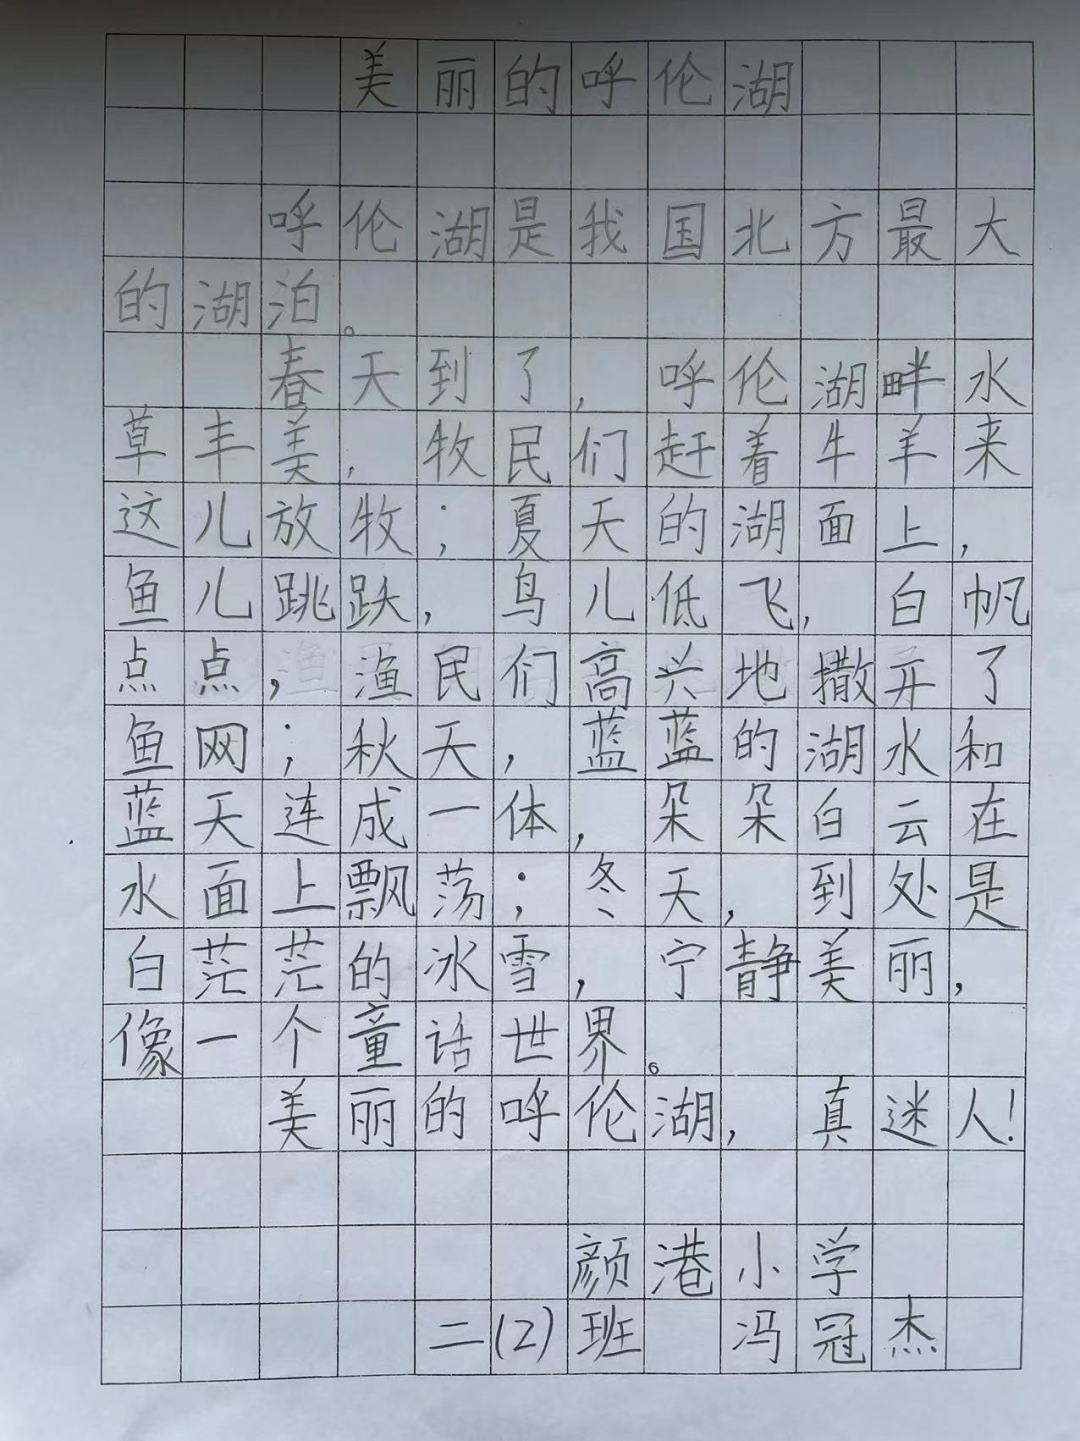 美丽的呼伦湖
呼伦湖是我国北方最大
的湖泊。
春天到了，呼伦湖畔水
草丰美，牧民们赶着牛羊来
这儿放牧；夏天的湖面上，
鱼儿跳跃，鸟儿低飞，白帆
点点，渔民们高兴地撒开了
鱼网；秋天，蓝蓝的湖水和
蓝天连成一体，朵朵白云在
水面上飘荡；冬天，到处是
白茫茫的冰雪，宁静美丽，
像一个童话世界。
美丽的呼伦湖，真迷人！
颜港小学
二(2)班 冯冠杰